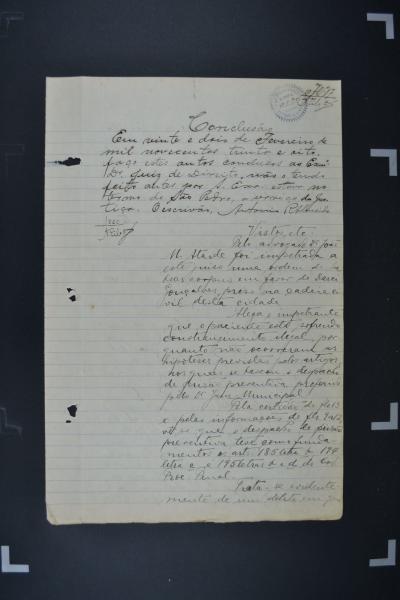 Conclusão
Em vinte e dois de Fevereiro de
mil novecentos trinta e oito,
faço estes autos conclusos ao Exmo
Dr. Juiz de Direito, não o tendo
feito antes por S. Exa. estar no
termo de São Pedro, a serviço da Jus-
tiça. O escrivão, Antonio
Vistos, etc.
Pelo advogado Dr. João
M. Ataide foi impetrada a
este juizo uma ordem de ha-
beas corpus em favor de
Gonçalves, preso na cadeia ci-
vil desta cidade.
Alega o impetrante
que o paciente está sofrendo
constrangimento ilegal, por
quanto não ocorreram as
hipoteses previstas pelos artigos
nos quaes se baseou o despacho
de prisão preventiva proferido
pelo Dr. Juiz Municipal.
Pela certidão de fls
e pelas informações de fls
vê-se que o despacho de prisão
preventiva teve como funda
mentos os arts. 185 letra a 194
letra c e 195 letras a e d do Cod.
Proc. Penal.
Trata-se evidente
mente de um delito em que